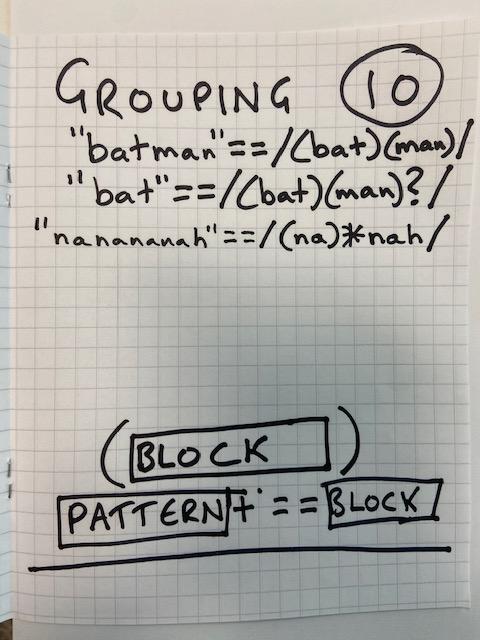 GROUPING 10
"batman"==/(bat)(man)/
"bat"==/(bat)(man)?/
"nanananah"==/(na)*nah/
(BLOCK)
PATTERN+ == BLOCK